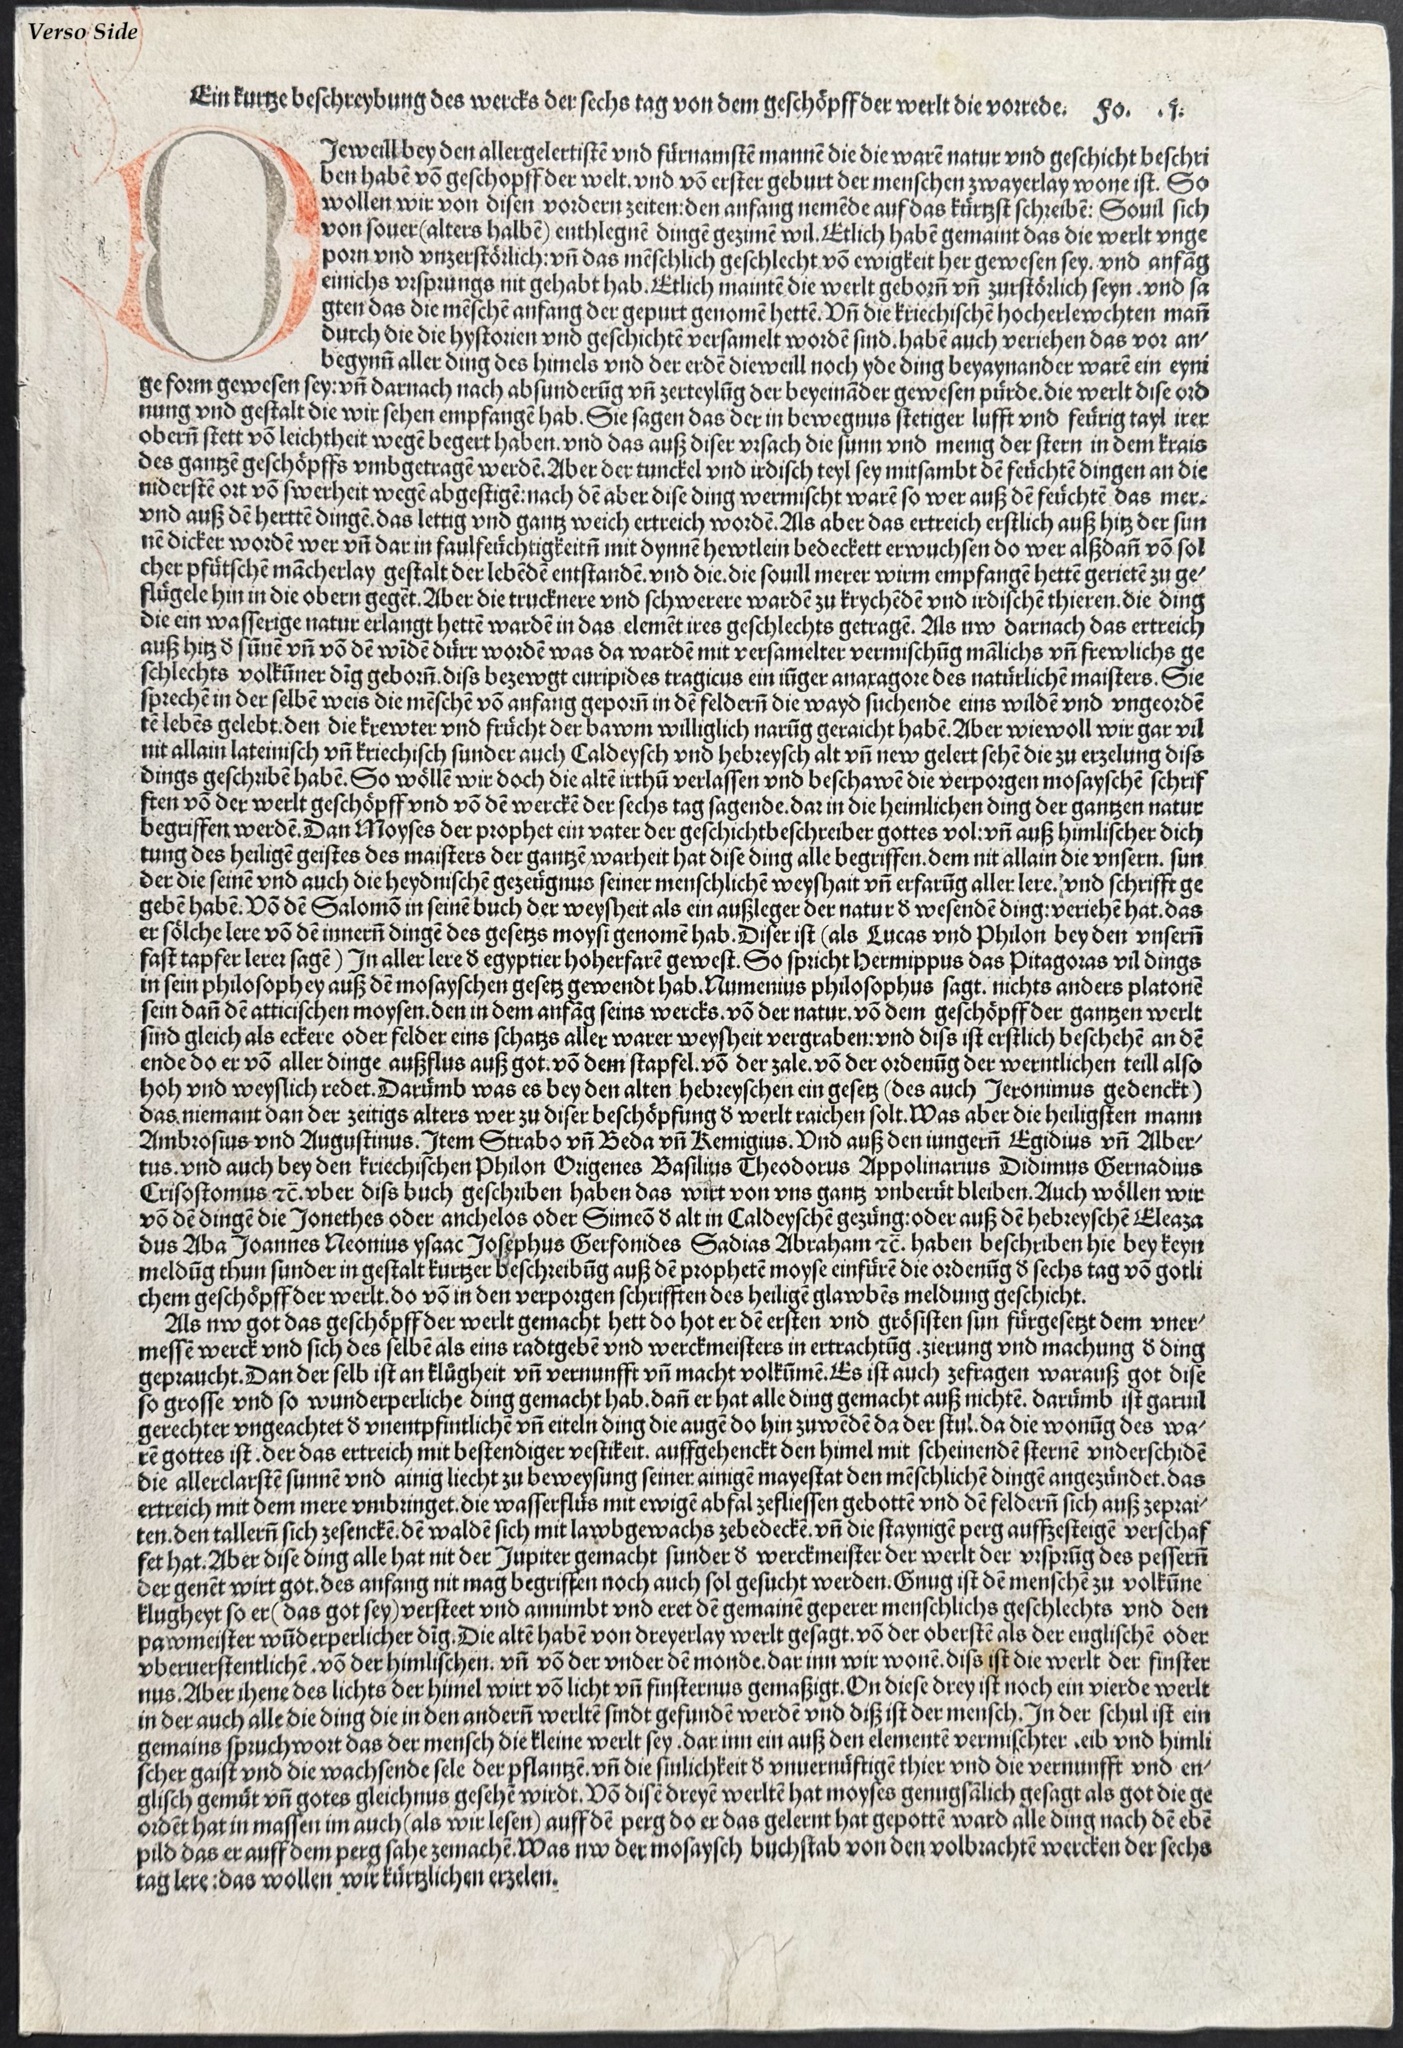 Verso Side
Ein kurtze beschreybung des wercks der sechs tag von dem geschöpff der werlt die vorrede. Fo. .i.
DJeweill bey den allergelertistē vnd fürnamstē mannē die die warē natur vnd geschicht beschri
ben habē vō geschopff der welt. vnd vō erster geburt der menschen zwayerlay wone ist. So
wollen wir von disen vordern zeiten: den anfang nemēde auf das kürtzst schreibē: Souil sich
von souer (alters halbē) enthlegnē dingē gezimē wil. Etlich habē gemaint das die werlt vnge
porn vnd vnzerstörlich: vn̄ das mēschlich geschlecht vō ewigkeit her gewesen sey. vnd anfāg
einichs vrsprungs nit gehabt hab. Etlich maintē die werlt geborn̄ vn̄ zurstörlich seyn. vnd sa
gten das die mēschē anfang der gepurt genomē hettē. Vn̄ die kriechischē hocherlewchten man̄
durch die die hystorien vnd geschichtē versamelt wordē sind. haben auch veriehen das vor an-
begynn̄ aller ding des himels vnd der erdē dieweill noch yde ding beyaynander warē ein eyni
ge form gewesen sey: vn̄ darnach nach absunderūg vn̄ zerteylūg der beyeināder gewesen pürde. die werlt dise ord
nung vnd gestalt die wir sehen empfangē hab. Sie sagen das der in bewegnus stetiger lufft vnd feürig tayl irer
obern̄ stett vō leichtheit wegē begert haben. vnd das auß diser vrsach die sunn vnd menig der stern in dem krais
des gantzē geschöpffs vmbgetragē werdē. Aber der tunckel vnd irdisch teyl sey mitsambt dē feüchtē dingen an die
niderstē ort vō swerheit wegē abgestigē: nach dē aber dise ding wermischt warē so wer auß dē feüchtē das mer.
vnd auß dē herttē dingē. das lettig vnd gantz weich ertreich wordē. Als aber das ertreich erstlich auß hitz der sun
nē dicker wordē wer vn̄ dar in faulfeüchtigkeitn̄ mit dynnē hewtlein bedeckett erwuchsen do wer alßdan̄ vō sol
cher pfütschē mācherlay gestalt der lebēdē entstandē. vnd die. die souill merer wirm empfangē hettē gerietē zu ge-
flügele hin in die obern gegēt. Aber die trucknere vnd schwerere wardē zu krychēdē vnd irdischē thieren. die ding
die ein wasserige natur erlangt hettē wardē in das elemēt ires geschlechts getragē. Als nw darnach das ertreich
auß hitz d̄ sūnē vn̄ vō dē wīdē dürr wordē was da wardē mit versamelter vermischūg mālichs vn̄ frewlichs ge
schlechts volkūner dīg geborn̄. diss bezewgt euripides tragicus ein iūger anaxagore des natürlichē maisters. Sie
sprechē in der selbē weis die mēschē vō anfang geporn̄ in dē feldern̄ die wayd suchende eins wildē vnd vngeordē
tē lebēs gelebt. den die krewter vnd frücht der bawm williglich narūg geraicht habē. Aber wiewoll wir gar vil
nit allain lateinisch vn̄ kriechisch sunder auch Caldeysch vnd hebreysch alt vn̄ new gelert sehē die zu erzelung diss
dings geschribē habē. So wöllē wir doch die altē irthū verlassen vnd beschawē die verporgen mosayschē schrif
ften vō der werlt geschöpff vnd vō dē werckē der sechs tag sagende. dar in die heimlichen ding der gantzen natur
begriffen werdē. Dan Moyses der prophet ein vater der geschichtbeschreiber gottes vol: vn̄ auß himlischer dich
tung des heiligē geistes des maisters der gantzē warheit hat dise ding alle begriffen. dem nit allain die vnsern. sun
der die seinē vnd auch die heydnischē gezeügnus seiner menschlichē weyshait vn̄ erfarūg aller lere. vnd schrifft ge
gebē habē. Vō dē Salomō in seinē buch der weysheit als ein außleger der natur d̄ wesendē ding: veriehē hat. das
er sölche lere vō dē innern̄ dingē des gesetzs moysi genomē hab. Diser ist (als Lucas vnd Philon bey den vnsern̄
fast tapfer lerer sagē) In aller lere d̄ egyptier hoherfarē gewest. So spricht Hermippus das Pitagoras vil dings
in sein philosophey auß dē mosayschen gesetz gewendt hab. Numenius philosophus sagt. nichts anders platonē
sein dan̄ dē atticischen moysen. den in dem anfāg seins wercks. vō der natur. vō dem geschöpff der gantzen werlt
sind gleich als eckere oder felder eins schatzs aller warer weysheit vergraben: vnd diss ist erstlich beschehē an dē
ende do er vō aller dinge außflus auß got. vō dem stapfel. vō der zale. vō der ordenūg der werntlichen teill also
hoh vnd weyslich redet. Darümb was es bey den alten hebreyschen ein gesetz (des auch Jeronimus gedenckt)
das. niemant dan der zeitigs alters wer zu diser beschöpfung d̄ werlt raichen solt. Was aber die heiligsten mann
Ambrosius vnd Augustinus. Jtem Strabo vn̄ Beda vn̄ Remigius. Vnd auß den iungern̄ Egidius vn̄ Alber-
tus. vnd auch bey den kriechischen Philon Origenes Basilius Theodorus Appolinarius Didimus Gernadius
Crisostomus ⁊c̄. vber diss buch geschriben haben das wirt von vns gantz vnberüt bleiben. Auch wöllen wir
vō dē dingē die Jonethes oder anchelos oder Simeō d̄ alt in Caldeyschē gezüng: oder auß dē hebreyschē Eleaza
dus Aba Joannes Neonius ysaac Josephus Gersonides Sadias Abraham ⁊c̄. haben beschriben hie bey keyn
meldūg thun sunder in gestalt kurtzer beschreibūg auß dē prophetē moyse einfürē die ordenūg d̄ sechs tag vō gotli
chem geschöpff der werlt. do vō in den verporgen schrifften des heiligē glawbēs meldung geschicht.
Als nw got das geschöpff der werlt gemacht hett do hot er dē ersten vnd grösisten sun fürgesetzt dem vner-
messē werck vnd sich des selbē als eins radtgebē vnd werckmeisters in ertrachtūg. zierung vnd machung d̄ ding
gepraucht. Dan der selb ist an klůgheit vn̄ vernunfft vn̄ macht volkūmē. Es ist auch zefragen warauß got dise
so grosse vnd so wunderperliche ding gemacht hab. dan̄ er hat alle ding gemacht auß nichtē. darümb ist garuil
gerechter vngeachtet d̄ vnentpfintlichē vn̄ eiteln ding die augē do hin zuwēdē da der stul. da die wonūg des wa-
rē gottes ist. der das ertreich mit bestendiger vestikeit. auffgehenckt den himel mit scheinendē sternē vnderschidē
die allerclarstē sunnē vnd ainig liecht zu beweysung seiner ainigē mayestat den mēschlichē dingē angezündet. das
ertreich mit dem mere vmbringet. die wasserflüs mit ewigē abfal zefliessen gebottē vnd dē feldern̄ sich auß zeprai-
ten. den tallern̄ sich zesenckē. dē waldē sich mit lawbgewachs zebedeckē. vn̄ die staynigē perg auffzesteigē verschaf
fet hat. Aber dise ding alle hat nit der Jupiter gemacht sunder d̄ werckmeister der werlt der vrsprūg des pessern̄
der genēt wirt got. des anfang nit mag begriffen noch auch sol gesucht werden. Gnug ist dē menschē zu volkūne
klugheyt so er (das got sey) versteet vnd annimbt vnd eret dē gemainē geperer menschlichs geschlechts vnd den
pawmeister wūderperlicher dīg. Die altē habē von dreyerlay werlt gesagt. vō der oberstē als der englischē oder
vberuerstentlichē. vō der himlischen. vn̄ vō der vnder dē monde. dar inn wir wonē. diss ist die werlt der finster
nus. Aber ihene des lichts der himel wirt vō licht vn̄ finsternus gemaßigt. On diese drey ist noch ein vierde werlt
in der auch alle die ding die in den andern̄ werltē sindt gefundē werdē vnd diß ist der mensch. In der schul ist ein
gemains spruchwort das der mensch die kleine werlt sey. dar inn ein auß den elementē vermischter .eib vnd himli
scher gaist vnd die wachsende sele der pflantzē. vn̄ die sinlichkeit d̄ vnuernüftigē thier vnd die vernunfft vnd en-
glisch gemüt vn̄ gotes gleichnus gesehē wirdt. Vō disē dreyē werltē hat moyses genugsālich gesagt als got die ge
ordēt hat in massen im auch (als wir lesen) auff dē perg do er das gelernt hat gepottē ward alle ding nach dē ebē
pild das er auff dem perg sahe zemachē. Was nw der mosaysch buchstab von den volbrachtē wercken der sechs
tag lere: das wollen wir kürtzlichen erzelen.